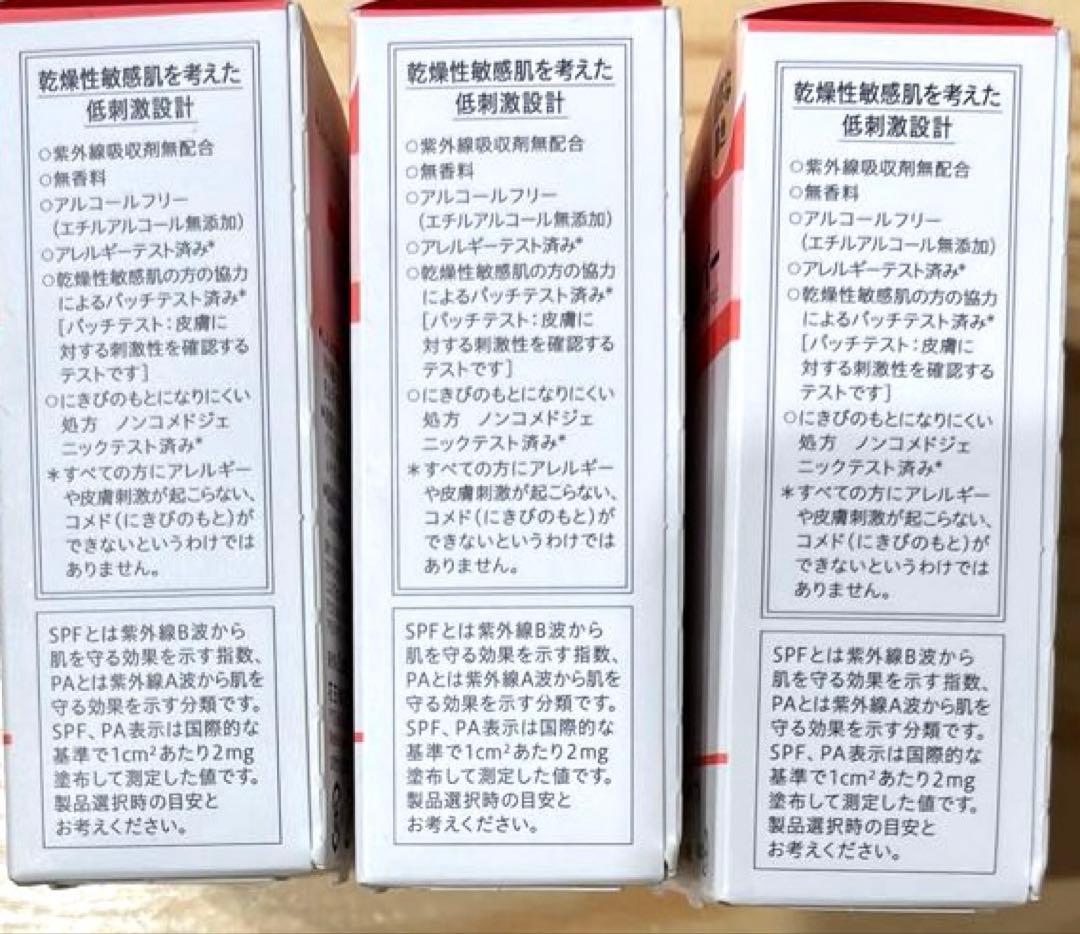 乾燥性敏感肌を考えた
低刺激設計
○紫外線吸収剤無配合
○無香料
○アルコールフリー
(エチルアルコール無添加)
○アレルギーテスト済み*
○乾燥性敏感肌の方の協力
によるパッチテスト済み*
[パッチテスト:皮膚に
対する刺激性を確認する
テストです]
○にきびのもとになりにくい
処方 ノンコメドジェ
ニックテスト済み*
*すべての方にアレルギー
や皮膚刺激が起こらない、
コメド(にきびのもと)が
できないというわけでは
ありません。
SPFとは紫外線B波から
肌を守る効果を示す指数、
PAとは紫外線A波から肌を
守る効果を示す分類です。
SPF、PA表示は国際的な
基準で1cm²あたり2mg
塗布して測定した値です。
製品選択時の目安と
お考えください。
乾燥性敏感肌を考えた
低刺激設計
○紫外線吸収剤無配合
○無香料
○アルコールフリー
(エチルアルコール無添加)
○アレルギーテスト済み*
○乾燥性敏感肌の方の協力
によるパッチテスト済み*
[パッチテスト:皮膚に
対する刺激性を確認する
テストです]
○にきびのもとになりにくい
処方 ノンコメドジェ
ニックテスト済み*
*すべての方にアレルギー
や皮膚刺激が起こらない、
コメド(にきびのもと)が
できないというわけでは
ありません。
SPFとは紫外線B波から
肌を守る効果を示す指数、
PAとは紫外線A波から肌を
守る効果を示す分類です。
SPF、PA表示は国際的な
基準で1cm²あたり2mg
塗布して測定した値です。
製品選択時の目安と
お考えください。
乾燥性敏感肌を考えた
低刺激設計
○紫外線吸収剤無配合
○無香料
○アルコールフリー
(エチルアルコール無添加)
○アレルギーテスト済み*
○乾燥性敏感肌の方の協力
によるパッチテスト済み*
[パッチテスト:皮膚に
対する刺激性を確認する
テストです]
○にきびのもとになりにくい
処方 ノンコメドジェ
ニックテスト済み*
*すべての方にアレルギー
や皮膚刺激が起こらない、
コメド(にきびのもと)が
できないというわけでは
ありません。
SPFとは紫外線B波から
肌を守る効果を示す指数、
PAとは紫外線A波から肌を
守る効果を示す分類です。
SPF、PA表示は国際的な
基準で1cm²あたり2mg
塗布して測定した値です。
製品選択時の目安と
お考えください。